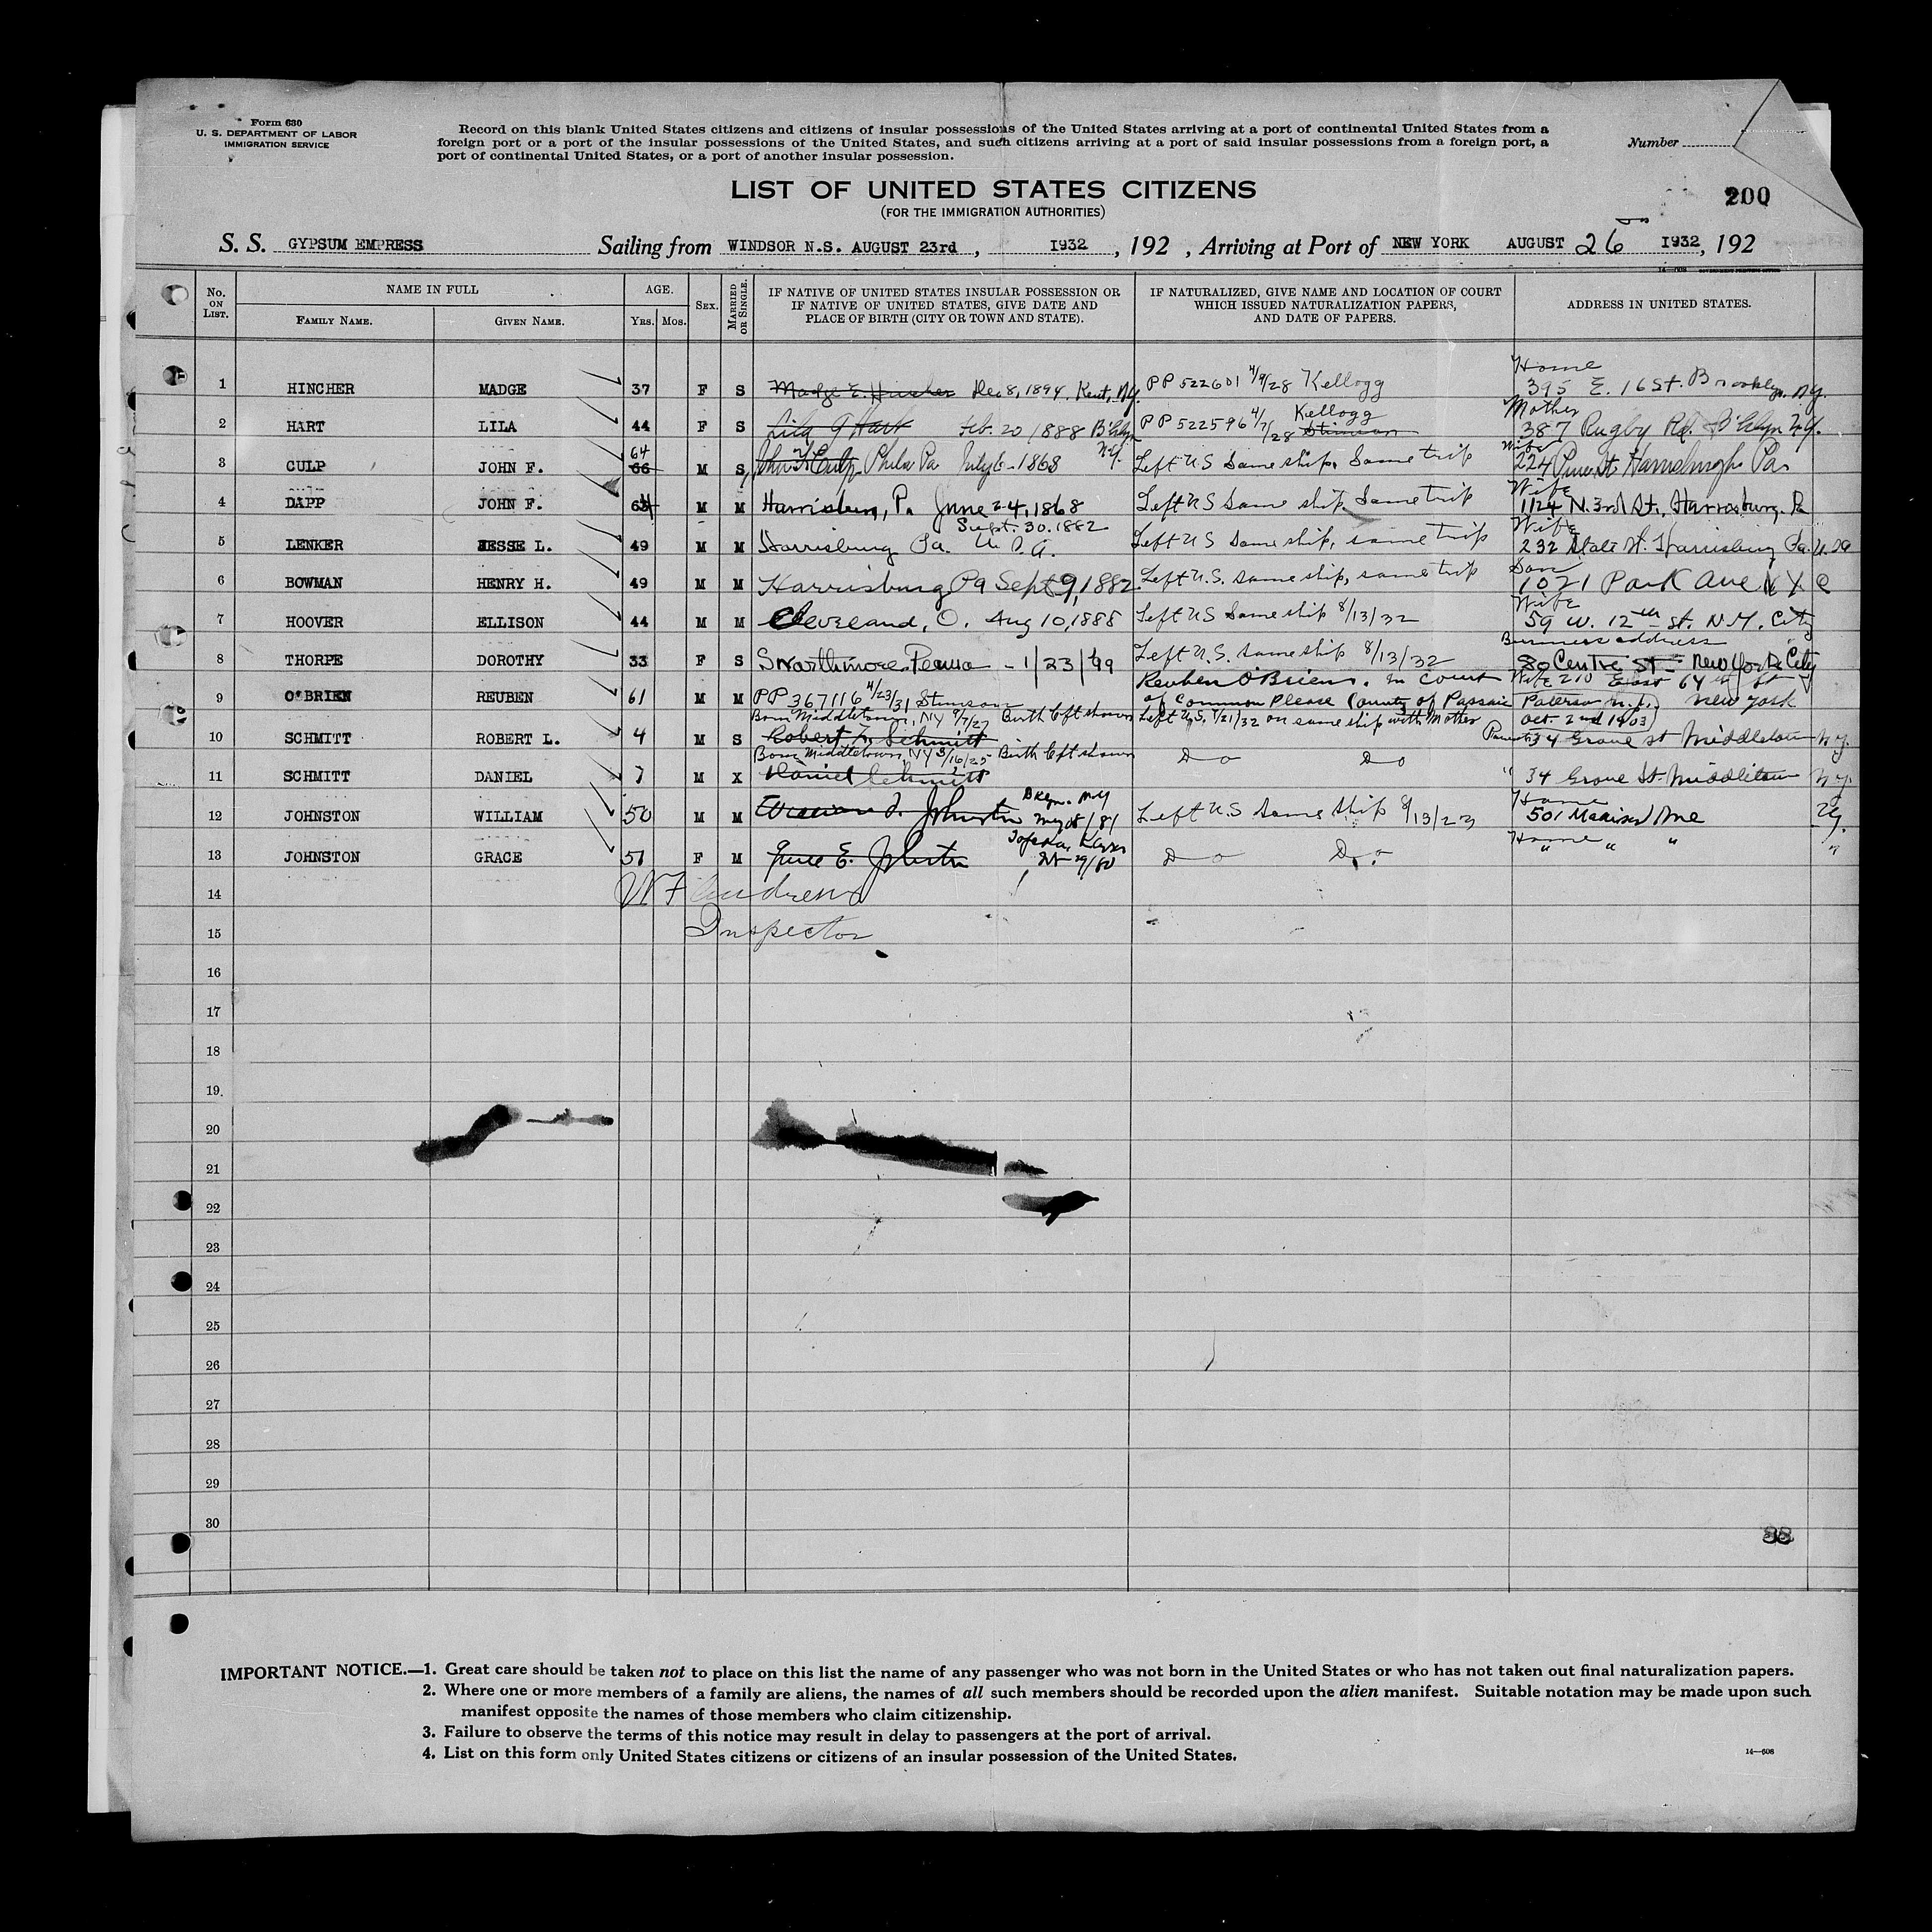 Form 630
U. S. DEPARTMENT OF LABOR
IMMIGRATION SERVICE
Record on this blank United States citizens and citizens of insular possessions of the United States arriving at a port of continental United States from a
foreign port or a port of the insular possessions of the United States, and such citizens arriving at a port of said insular possessions from a foreign port, a
port of continental United States, or a port of another insular possession.
Number
LIST OF UNITED STATES CITIZENS
(FOR THE IMMIGRATION AUTHORITIES)
200
S. S. GYPSUM EMPRESS Sailing from WINDSOR N.S. AUGUST 23rd, 1932, 192 , Arriving at Port of NEW YORK AUGUST 26 1932, 192
14—608 GOVERNMENT PRINTING OFFICE
No. ON LIST. NAME IN FULL AGE. SEX. MARRIED OR SINGLE. IF NATIVE OF UNITED STATES INSULAR POSSESSION OR IF NATIVE OF UNITED STATES, GIVE DATE AND PLACE OF BIRTH (CITY OR TOWN AND STATE). IF NATURALIZED, GIVE NAME AND LOCATION OF COURT WHICH ISSUED NATURALIZATION PAPERS, AND DATE OF PAPERS. ADDRESS IN UNITED STATES.
FAMILY NAME. GIVEN NAME. YRS. MOS.
Home
1 HINCHER MADGE 37 F S Madge E. Hincher Dec 8, 1894. Kent, N.Y. PP 522601 4/9/28 Kellogg 395 E. 16 St. Brooklyn. N.Y.
Mother
2 HART LILA 44 F S Lila G Hart Feb. 20 1888 B'klyn N.Y. PP 522596 4/7/28 Kellogg Stimson 387 Rugby Rd. B'klyn N.Y.
Wife
3 CULP JOHN F. 64 66 M S John F Culp Phila Pa July 6 - 1868 Left US Same ship, Same trip 224 Pine St Harrisburgh Pa
Wife
4 DAPP JOHN F. 64 M M Harrisburg, Pa June 24, 1868 Left US Same ship, Same trip 1124 N. 3rd St., Harrisburg. Pa
Sept. 30. 1882 Wife
5 LENKER JESSE L. 49 M M Harrisburg Pa. U.S.A. Left US Same ship, same trip 232 State St. Harrisburg Pa. U.S.A
Son
6 BOWMAN HENRY H. 49 M M Harrisburg Pa Sept 9, 1882 Left U.S. same ship, same trip 1021 Park Ave N Y C
Wife
7 HOOVER ELLISON 44 M M Cleveland, O. Aug 10, 1888 Left US Same ship 8/13/32 59 W. 12th St. N.Y. City
Business address
8 THORPE DOROTHY 33 F S Swarthmore Penna - 1/23/99 Left U.S. same ship 8/13/32 80 Centre St - New York City
Reuben O'Brien. In Court Wife 210 East 64th St
9 O'BRIEN REUBEN 61 M M PP 367116 4/23/31 Stimson of Common Please County of Passaic Paterson N.J. New York
Born Middletown, NY 9/7/27 Birth Cft shown Left U.S, 7/21/32 on same ship with Mother Oct. 2nd 1903
10 SCHMITT ROBERT L. 4 M S Robert L. Schmitt Parents 34 Grove St Middletown N.Y.
Born Middletown, NY 3/16/25 - Birth Cft shown Do Do
11 SCHMITT DANIEL 7 M X Daniel Schmitt " 34 Grove St. Middletown N.Y.
Bklyn. N.Y Home
12 JOHNSTON WILLIAM 50 M M Johnston Left U.S Same ship 501 Madison Ave N.Y.
Topeka, Kansas Home
13 JOHNSTON GRACE 51 F M Grace E. Johnston 29/80 Do Do " " " "
14 W F Andrews
15 Inspector
16
17
18
19
20
21
22
23
24
25
26
27
28
29
30
88
IMPORTANT NOTICE.—1. Great care should be taken not to place on this list the name of any passenger who was not born in the United States or who has not taken out final naturalization papers.
2. Where one or more members of a family are aliens, the names of all such members should be recorded upon the alien manifest. Suitable notation may be made upon such
manifest opposite the names of those members who claim citizenship.
3. Failure to observe the terms of this notice may result in delay to passengers at the port of arrival.
4. List on this form only United States citizens or citizens of an insular possession of the United States.
14—608